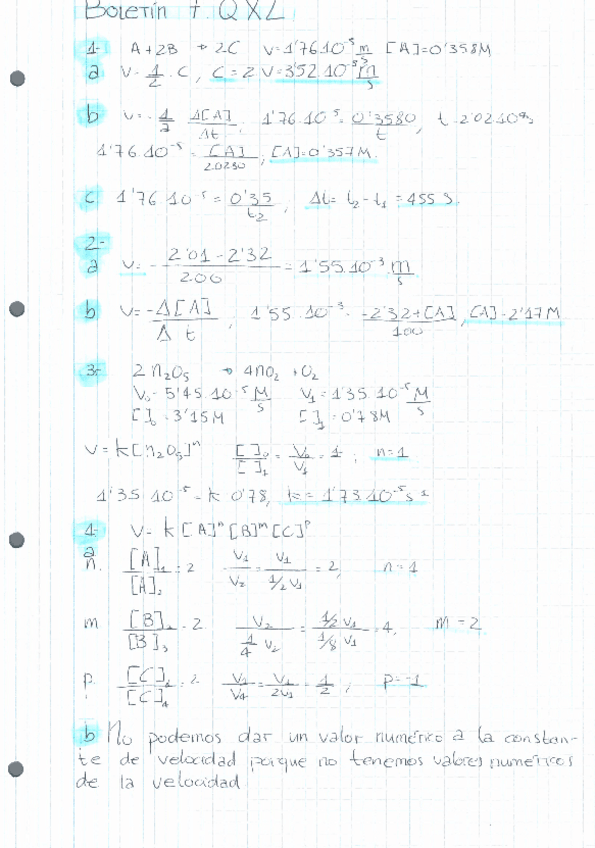 Boletín 7. QXL
1- A+2B → 2C V=1'76·10⁻⁵ m/s [A]=0'358M
a V= 1/2 · C, C=2V=3'52·10⁻⁵ m/s
b V=- 1/a Δ[A]/Δt, 1'76·10⁻⁵= 0'3580/t, t=2'02·10⁴s
1'76·10⁻⁵= [A]/20280, [A]=0'357M.
c 1'76·10⁻⁵= 0'35/t₂, Δt= t₂-t₁ =455 s.
2-
a V=- 2'01-2'32/200 = 1'55·10⁻³ m/s
b V= -Δ[A]/Δt, 1'55·10⁻³= -2'32+[A]/100, [A]=2'17M
3- 2n₂O₅ → 4nO₂ + O₂
V₀=5'45·10⁻⁵ M/s V₁=1'35·10⁻⁵ M/s
[ ]₀=3'15M [ ]₁=0'78M
V=k[n₂O₅]ⁿ [ ]₀/[ ]₁ = V₀/V₁ = 4; n=1
1'35·10⁻⁵= k 0'78, k=1'73·10⁻⁵s⁻¹
4- V= k[A]ⁿ[B]ᵐ[C]ᵖ
a
n. [A]₁/[A]₂=2 V₁/V₂ = V₁/1/2V₁ = 2, n=1
m [B]₂/[B]₃=2 V₂/1/4 V₂ = 1/2 V₁/1/8 V₁ = 4, m=2
p. [C]₁/[C]₄=2 V₁/V₄ = V₁/2V₁ = 1/2; p=-1
b No podemos dar un valor numérico a la constan-
te de velocidad porque no tenemos valores numéricos
de la velocidad